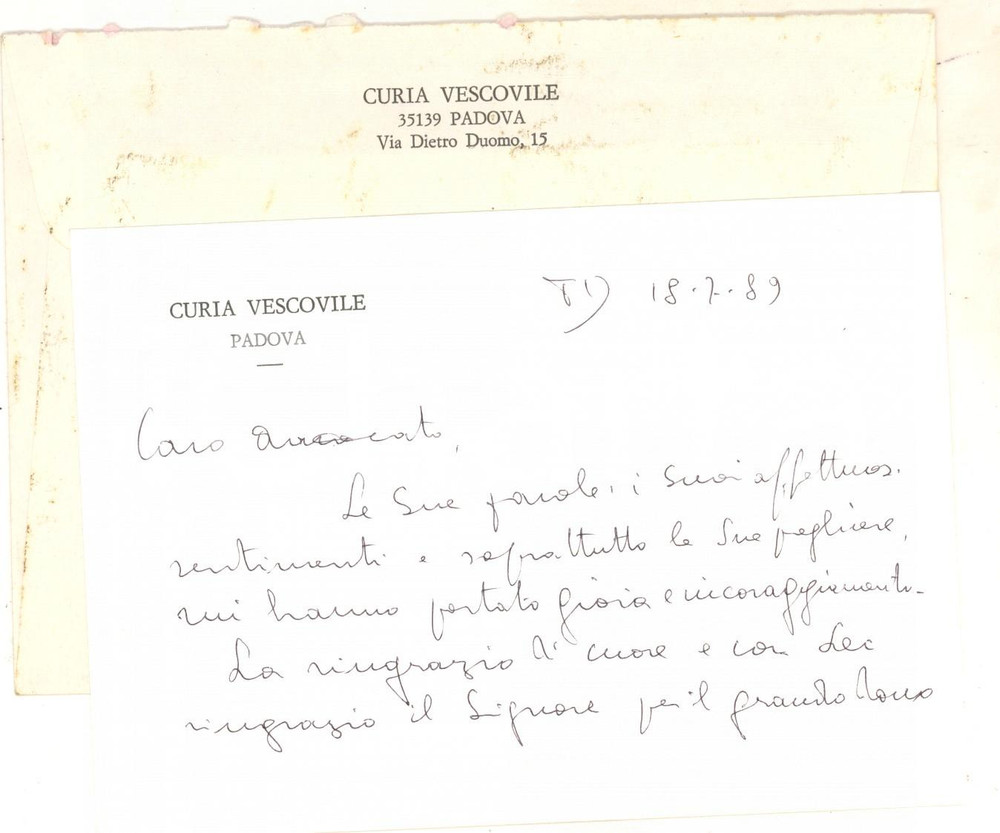 CURIA VESCOVILE
35139 PADOVA
Via Dietro Duomo, 15
CURIA VESCOVILE
PADOVA
18.7.89
Caro Avvocato,
Le Sue parole, i Suoi affettuosi
sentimenti e soprattutto le Sue preghiere,
mi hanno portato gioia e incoraggiamento.
La ringrazio di cuore e con Lei
ringrazio il Signore per il grande dono